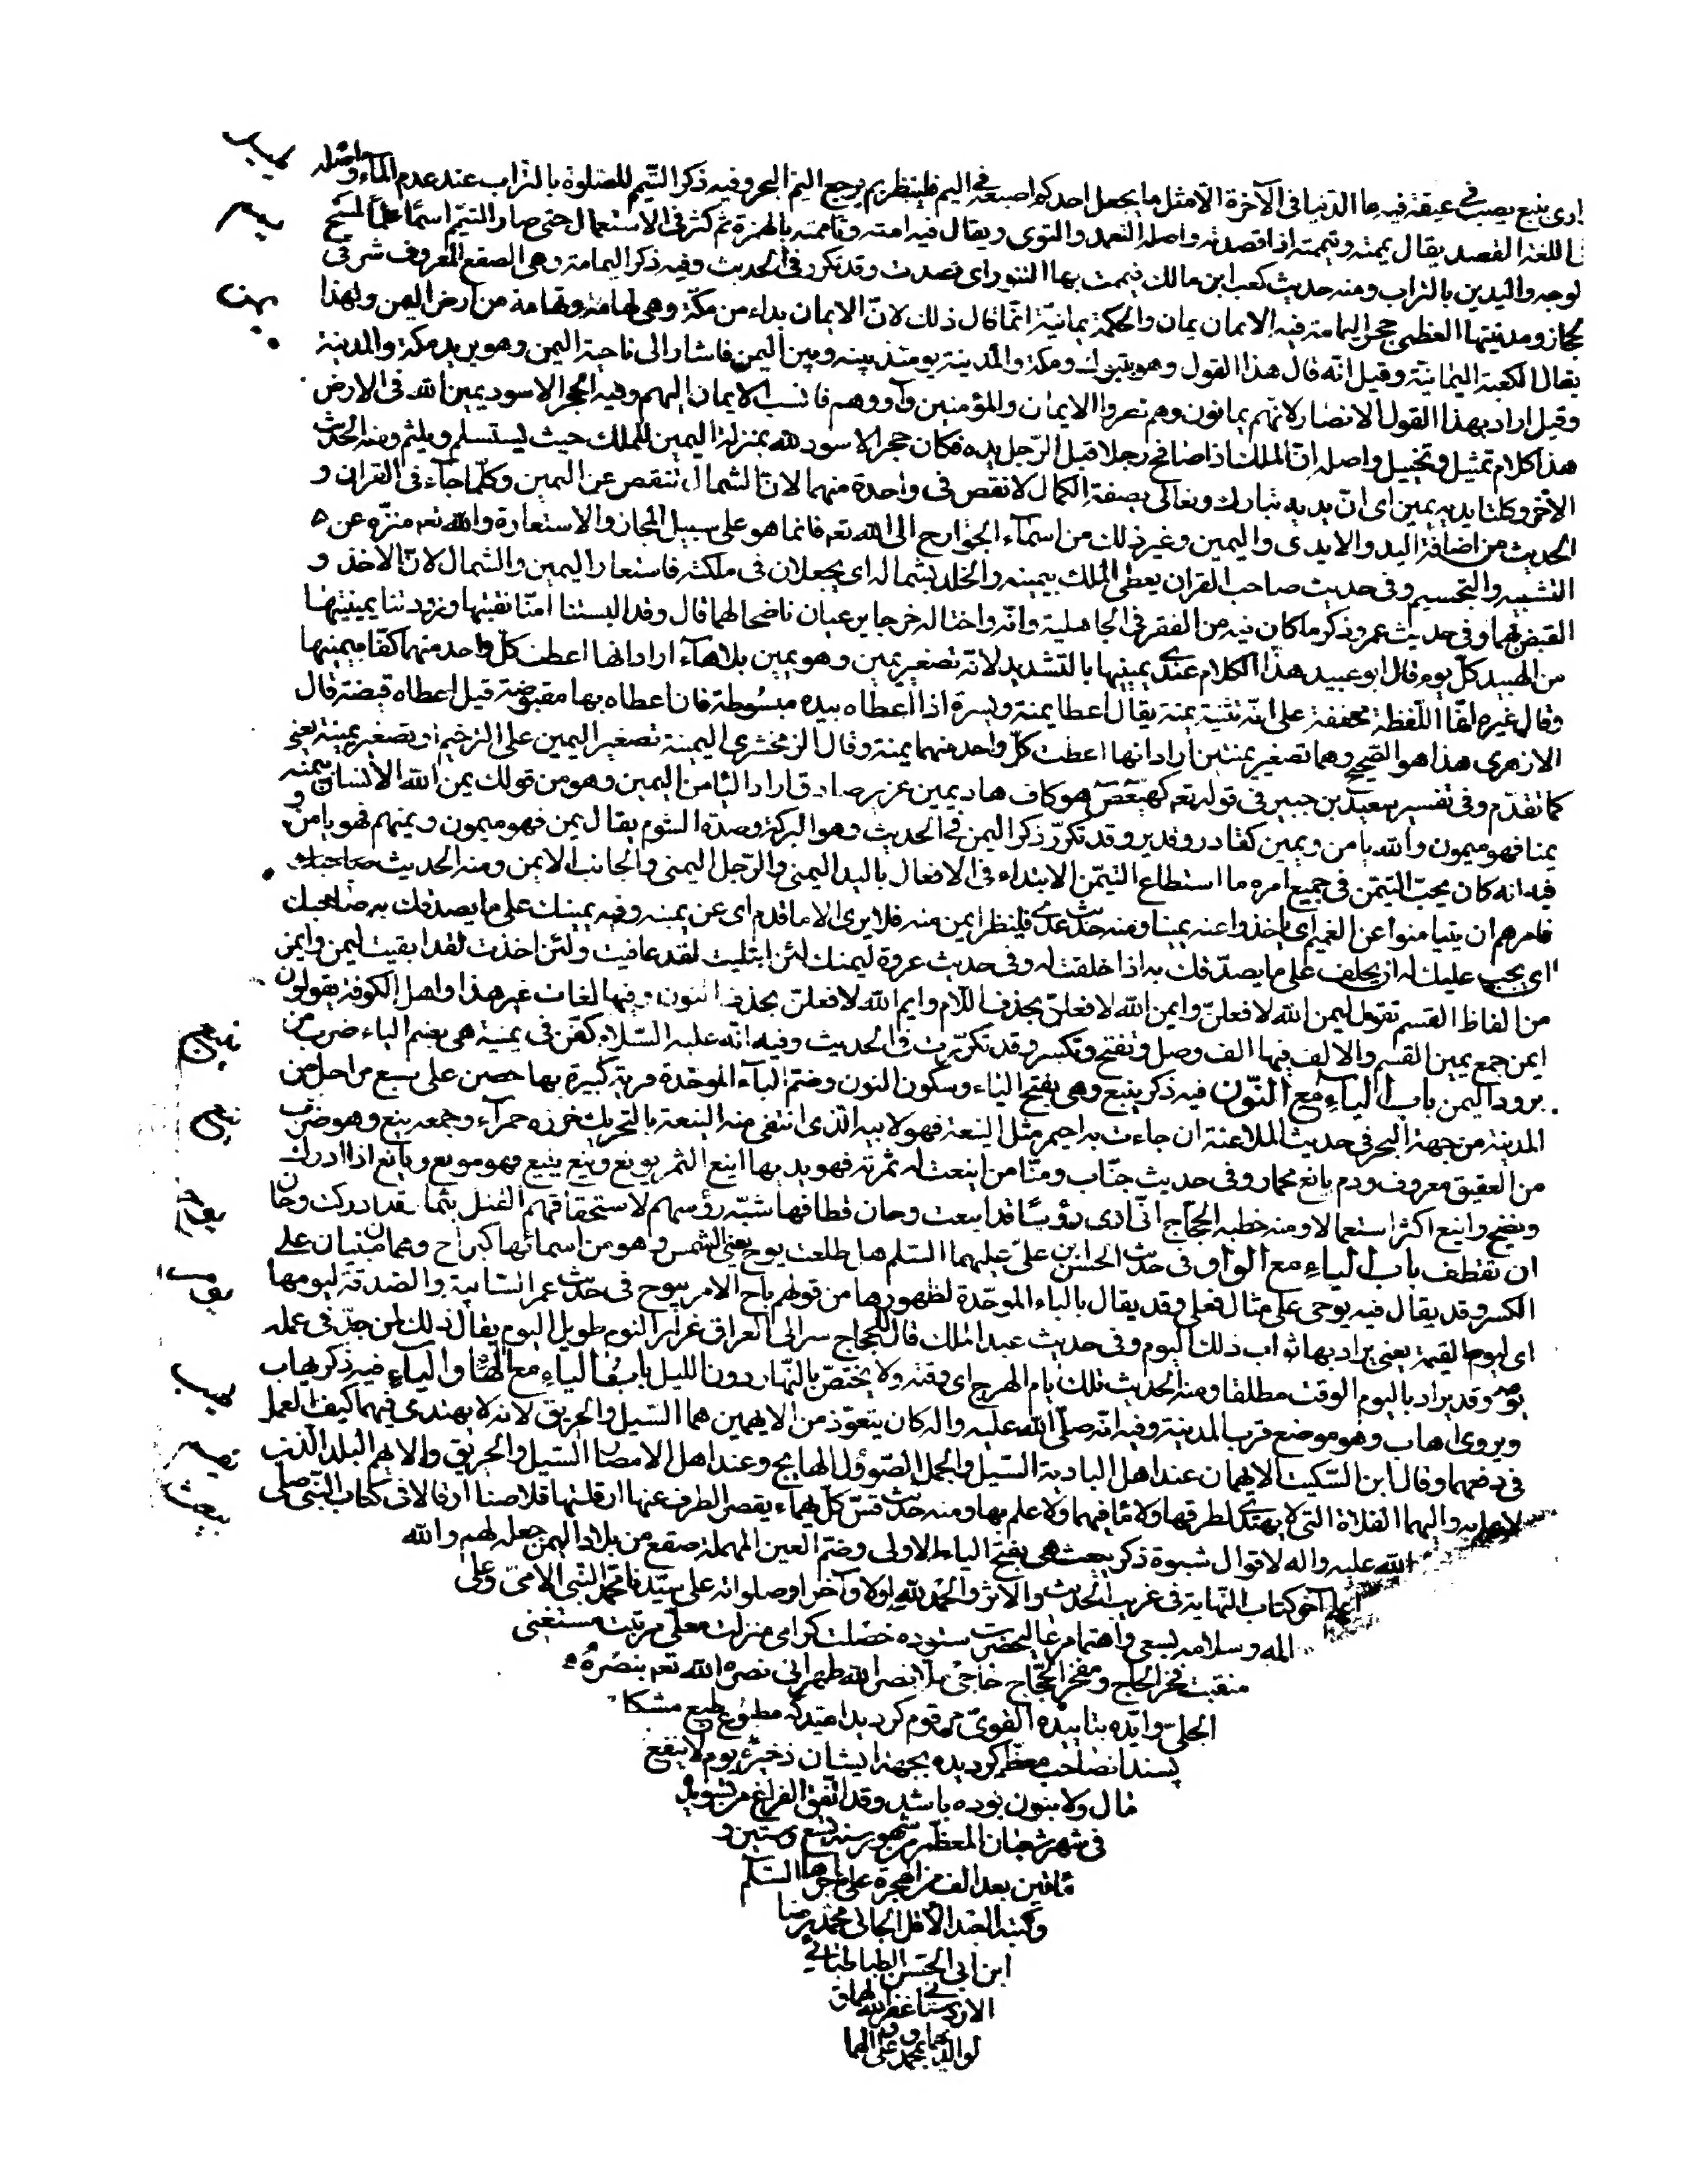 ادى ينبع يصب في عيقة فيه ما الدنيا فى الآخرة الّا مثل ما يجعل احدكم اصبعه فى اليم فلينظر بم يرجع اليم البحر وفيه ذكر التيّمم للصّلوة بالتراب عند عدم الماء واصله
فى اللغة القصد يقال يمّمته وتيمّمته اذا قصدته واصله التعمد والتوخى ويقال فيه امّمته وتأممته بالهمزة ثم كثر فى الاستعمال حتى صار التيمّم اسمًا علمًا لمسح
لوجه واليدين بالتراب ومنه حديث كعب ابن مالك فيممت بها التنور اى قصدت وقد تكرر فى الحديث وفيه ذكر اليمامة وهى الصقع المعروف شرقى
لحجاز ومدينتها العظمى حجر اليمامة فيه الايمان يمان والحكمة يمانيّة انّما قال ذلك لانّ الايمان بداء من مكّة وهى تهامة وتهامة من ارض اليمن ولهذا
يقال الكعبة اليمانيّة وقيل انّه قال هذا القول وهو بتبوك ومكة والمدينة يومئذ بينه وبين اليمن فاشار الى ناحية اليمن وهو يريد مكّة والمدينة
وقيل اراد بهذا القول الانصار لانهم يمانون وهم نصروا الايمان والمؤمنين وآووهم فانسب الايمان اليهم وفيه الحجر الاسود يمين الله فى الارض
هذا كلام تمثيل وتخييل واصله انّ الملك اذا صافح رجلا قبل الرّجل يده فكان حجر الاسود لله بمنزلة اليمين للملك حيث يستسلم ويلثم ومنه الحديث
الآخر وكلتا يديه يمين اى انّ يديه تبارك وتعالى بصفة الكمال لا نقص فى واحدة منهما لانّ الشمال تنقص عن اليمين وكلّما جآء فى القران و
الحديث من اضافة اليد والايدى واليمين وغير ذلك من اسمآء الجوارح الى الله تعه فانما هو على سبيل المجاز والاستعارة والله تعه منزّه عن
التشبيه والتجسيم وفى حديث صاحب القران يعطى الملك بيمينه والخلد بشماله اى يجعلان فى ملكته فاستعار اليمين والشمال لانّ الاخذ و
القبض بهما وفى حديث عمر وذكر ما كان فيه من الفقر فى الجاهلية وانّه واختا له خرجا يرعيان ناضحا لهما قال وقد البستنا امّنا نقبتها وزوّدتنا يمينتيها
من الهبيد كلّ يوم قال ابو عبيد هذا الكلام عندى يمينيها بالتشديد لانّه تصغير يمين وهو يمين بلا هاء اراد انها اعطت كلّ واحد منهما كفّا بيمينها
وقال غيره انّما اللّفظة مخففة على انّه تثنية يمنة يقال اعطا يمنة ويسرة اذا اعطاه بيده مبسوطة فان اعطاه بها مقبوضة قيل اعطاه قبضة قال
الازهرى هذا هو الصّحيح وهما تصغير يمنتين اراد انها اعطت كلّ واحد منهما يمنة وقال الزمخشرى اليمينة تصغير اليمين على الترخيم او تصغير يمنة يعنى
كما تقدّم وفى تفسير سعيد بن جبير فى قوله تعه كهيعص هو كاف هاد يمين عزيز صادق اراد اليا من اليمين وهو من قولك يمن الله الانسان ييمنه
يمنا فهو ميمون والله يامن ويمين كقادر وقدير وقد تكرّر ذكر اليمن فى الحديث وهو البركة وضدّه الشوم يقال يمن فهو ميمون ويمنهم فهو يامن و
فيه انه كان يحبّ التيمّن فى جميع امره ما استطاع التيمّن الابتداء فى الافعال باليد اليمنى والرّجل اليمنى والجانب الايمن ومنه الحديث
فامرهم ان يتيامنوا عن الغميم اى ياخذوا عنه يمينا ومنه حديث عدى فلينظر ايمن منه فلا يرى الا ما قدم اى عن يمينه وفيه يمينك على ما يصدقك به صاحبك
اى يجب عليك له ان يحلف على ما يصدّقك به اذا حلفت له وفى حديث عروة ليمنك لئن ابتليت لقد عافيت ولئن اخذت لقد ابقيت ليمن وايمن
من الفاظ القسم تقول ليمن الله لافعلنّ وايمن الله لافعلنّ بحذف اللام وايم الله لافعلنّ بحذف النون وفيها لغات غير هذا واهل الكوفة يقولون
ايمن جمع يمين القسم والالف فيها الف وصل وتفتح وتكسر وقد تكرّرت فى الحديث وفيه انّه عليه السّلام كفّن فى يمنية هى بضم الياء ضرب من
برود اليمن باب الياء مع النّون فيه ذكر ينبع وهى بفتح الياء وسكون النون وضمّ الباء الموحّدة قرية كبيرة بها حصن على سبع مراحل من
المدينة من جهة البحر فى حديث الملاعنة ان جاءت به احيمر مثل الينعة فهو لابيه الّذى انتفى منه الينعة بالتحريك خرزه حمرآء وجمعه ينع وهو ضرب
من العقيق معروف ودم يانع محمار وفى حديث خبّاب ومنّا من اينعت له ثمرته فهو يهديها اينع الثمر يونع وينع يينع فهو مونع ويانع اذا ادرك
ونضج واينع اكثر استعمالا ومنه خطبة الحجّاج انّى ارى رؤسًا قد اينعت وحان قطافها شبّه رؤسهم لاستحقاقهم القتل بثمار قد ادركت وحان
ان تقطف باب الياء مع الواو فى حديث الحسن بن علىّ عليهما السّلم هل طلعت يوح يعنى الشمس وهو من اسمائها كبراح وهما مبنيان على
الكسر وقد يقال فيه يوحى على مثال فعلى وقد يقال بالباء الموحّدة لظهورها من قولهم باح الامر يبوح فى حديث عمر السّايبة والصّدقة ليومها
اى ليوم القيمة يعنى يراد بها ثواب ذلك اليوم وفى حديث عبد الملك قال للحجاج سر الى العراق غرار النوم طويل اليوم يقال ذلك لمن جدّ فى عمله
يومه وقد يراد باليوم الوقت مطلقا ومنه الحديث تلك ايام الهرج اى وقته ولا يختصّ بالنّهار دون الليل باب الياء مع الهاء والياء فيه ذكر يهاب
ويروى اهاب وهو موضع قرب المدينة وفيه انّه صلّى الله عليه واله كان يتعوّذ من الايهمين هما السّيل والحريق لانه لا يهتدى فيهما كيف العمل
فى دفعهما وقال ابن السّكيت الايهمان عند اهل البادية السّيل والجمل الصّؤول الهايج وعند اهل الامصار السّيل والحريق والايهم البلد الّذى
لا علم به واليهما الفلاة التى لا يهتدى لطرقها ولا ماء فيها ولا علم بها ومنه حديث قسّ كلّ يهماء يقصر الطرف عنها ارقلتها قلاصنا ارقالا فى كتاب النّبى صلى
الله عليه واله لاقوال شبوة ذكر يبعث هى بفتح الياء الاولى وضمّ العين المهملة صقع من بلاد اليمن جعله لهم والله
اعلم آخر كتاب النّهاية فى غريب الحديث والاثر والحمد لله اولا وآخرا وصلواته على سيّدنا محمّد النّبى الامىّ وعلى
اله وسلامه بسعى واهتمام عاليحضرت ستوده خصلت كرامى منزلت معلّى مرتبت مستغنى
منقبت فخر الحاج ومفخر الحجّاج حاجى ملا نصر الله طهرانى نصره الله تعه بنصره
الجلىّ وايّده بتأييده القوىّ مرقوم كرديد اميد كه مطبوع طبع مشكل
پسند انصاحب معظم كرديده بجهة ايشان ذخيرهٔ يوم لا ينفع
مال ولا بنون بوده باشد وقد اتّفق الفراغ من تسويده
فى شهر شعبان المعظّم من شهور سنه تسع وستين و
مأتين بعد الف من الهجرة على مهاجرها السّلام
وكتبه العبد الاقل الجانى محمّد رضا
ابن ابى الحسن الطباطبائى
الاردستانى غفر الله لهما و
لوالديهما بمحمد وعلى والهما